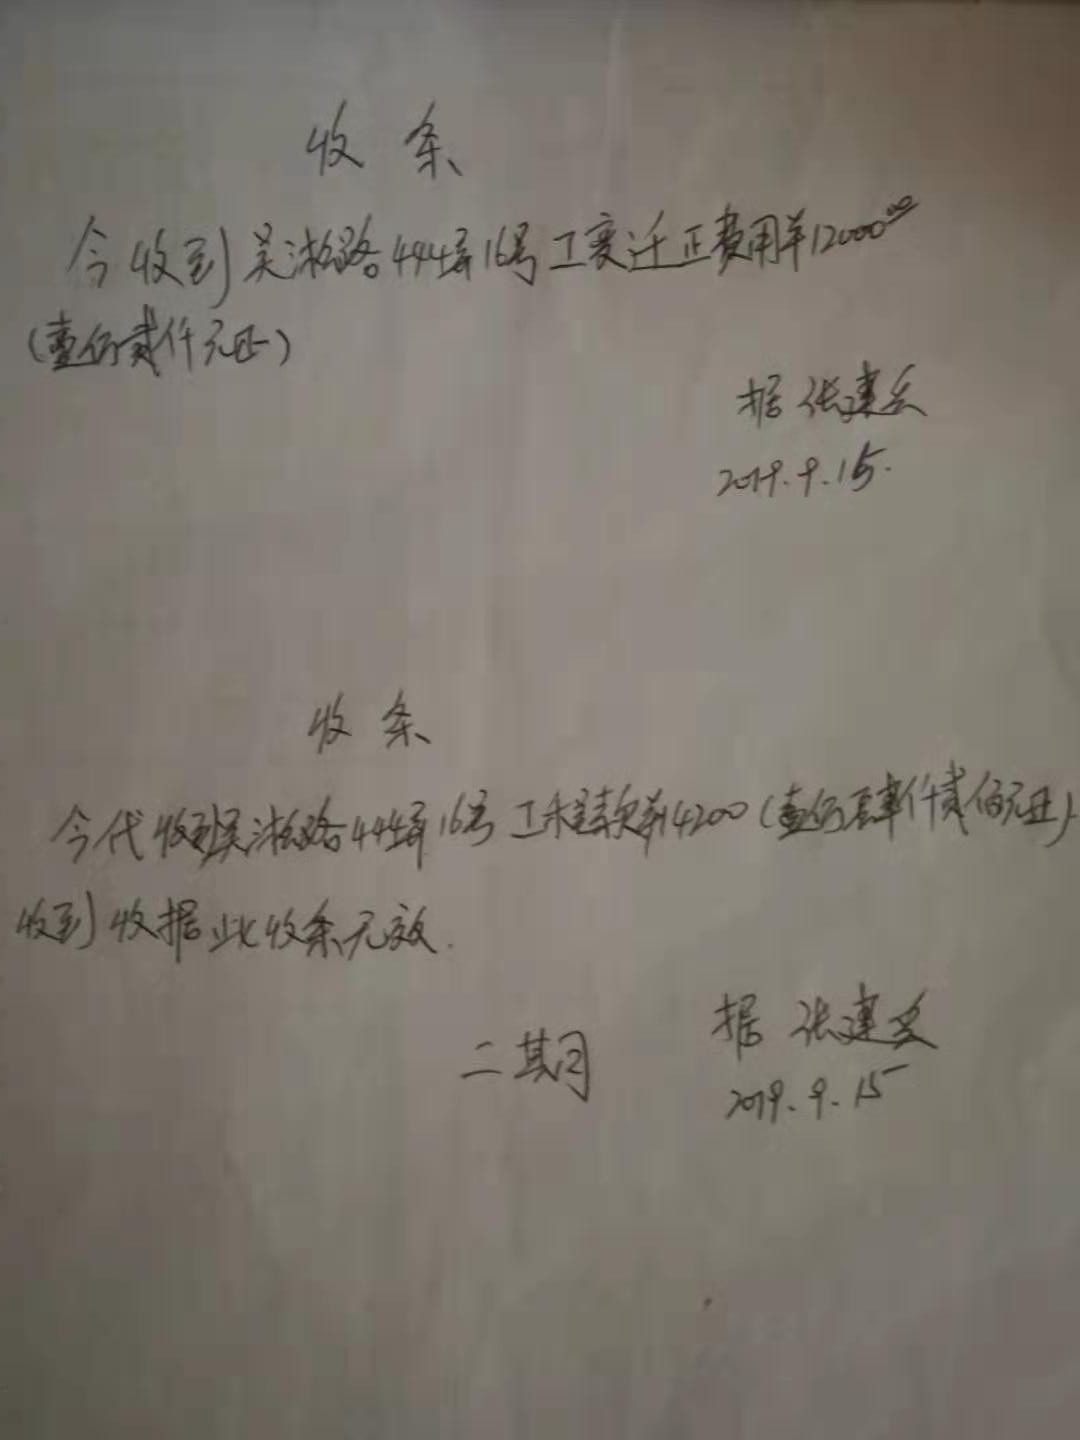 收条
今收到吴淞路444弄16号工变迁正费用¥12000.00
(壹仟贰仟元正)
据 张建
2019.9.15.
收条
今代收到吴淞路444弄16号工程款¥14200(壹仟肆仟贰佰元正)
收到收据此收条无效.
二期 据 张建
2019.9.15